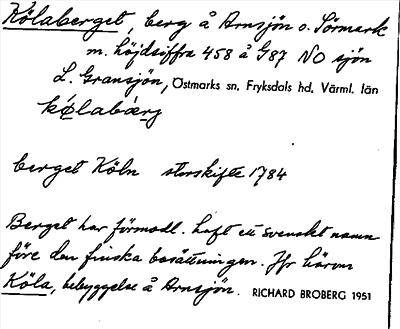 Kölaberget, berg å Arnsjön o. Sörmark
m. höjdsiffra 458 å G87 NO sjön
L. Gransjön, Östmarks sn, Fryksdals hd, Värml. län
kølabærg
berget Köln storskifte 1784
Berget har förmodl. haft ett svenskt namn
före den finska bosättningen. Jfr härom
Köla, bebyggelse å Arnsjön. RICHARD BROBERG 1951